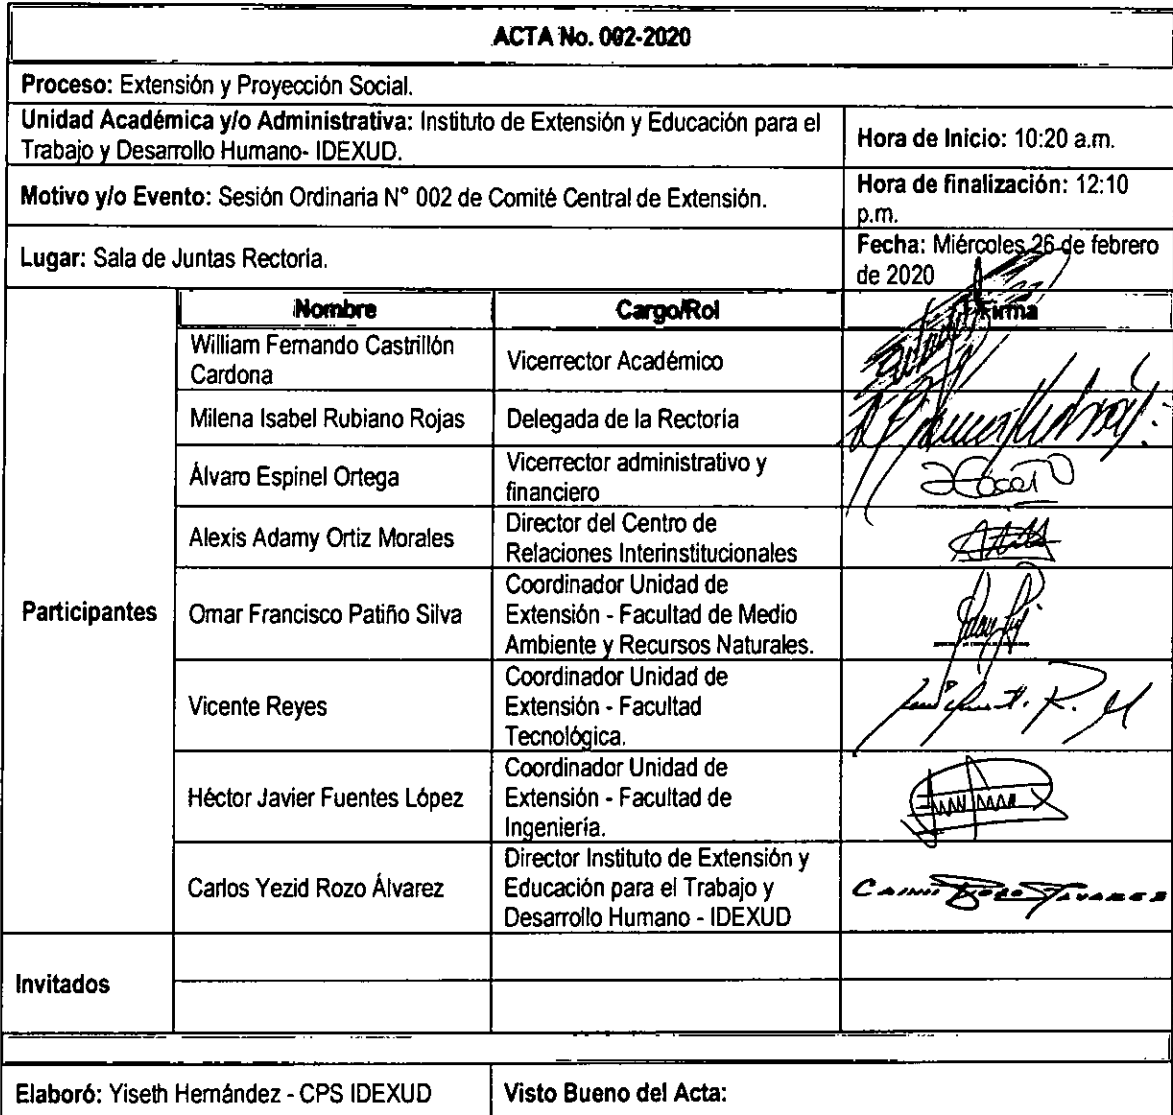 ACTA No. 002-2020
Proceso: Extensión y Proyección Social.
Unidad Académica y/o Administrativa: Instituto de Extensión y Educación para el
Trabajo y Desarrollo Humano- IDEXUD.
Hora de Inicio: 10:20 a.m.
Motivo y/o Evento: Sesión Ordinaria N° 002 de Comité Central de Extensión.
Hora de finalización: 12:10
p.m.
Lugar: Sala de Juntas Rectoría.
Fecha: Miércoles 26 de febrero
de 2020
Participantes
Nombre
Cargo/Rol
Firma
William Fernando Castrillón
Cardona
Vicerrector Académico
Milena Isabel Rubiano Rojas
Delegada de la Rectoría
Álvaro Espinel Ortega
Vicerrector administrativo y
financiero
Alexis Adamy Ortiz Morales
Director del Centro de
Relaciones Interinstitucionales
Omar Francisco Patiño Silva
Coordinador Unidad de
Extensión - Facultad de Medio
Ambiente y Recursos Naturales.
Vicente Reyes
Coordinador Unidad de
Extensión - Facultad
Tecnológica.
Héctor Javier Fuentes López
Coordinador Unidad de
Extensión - Facultad de
Ingeniería.
Carlos Yezid Rozo Álvarez
Director Instituto de Extensión y
Educación para el Trabajo y
Desarrollo Humano - IDEXUD
Invitados
Elaboró: Yiseth Hernández - CPS IDEXUD
Visto Bueno del Acta: